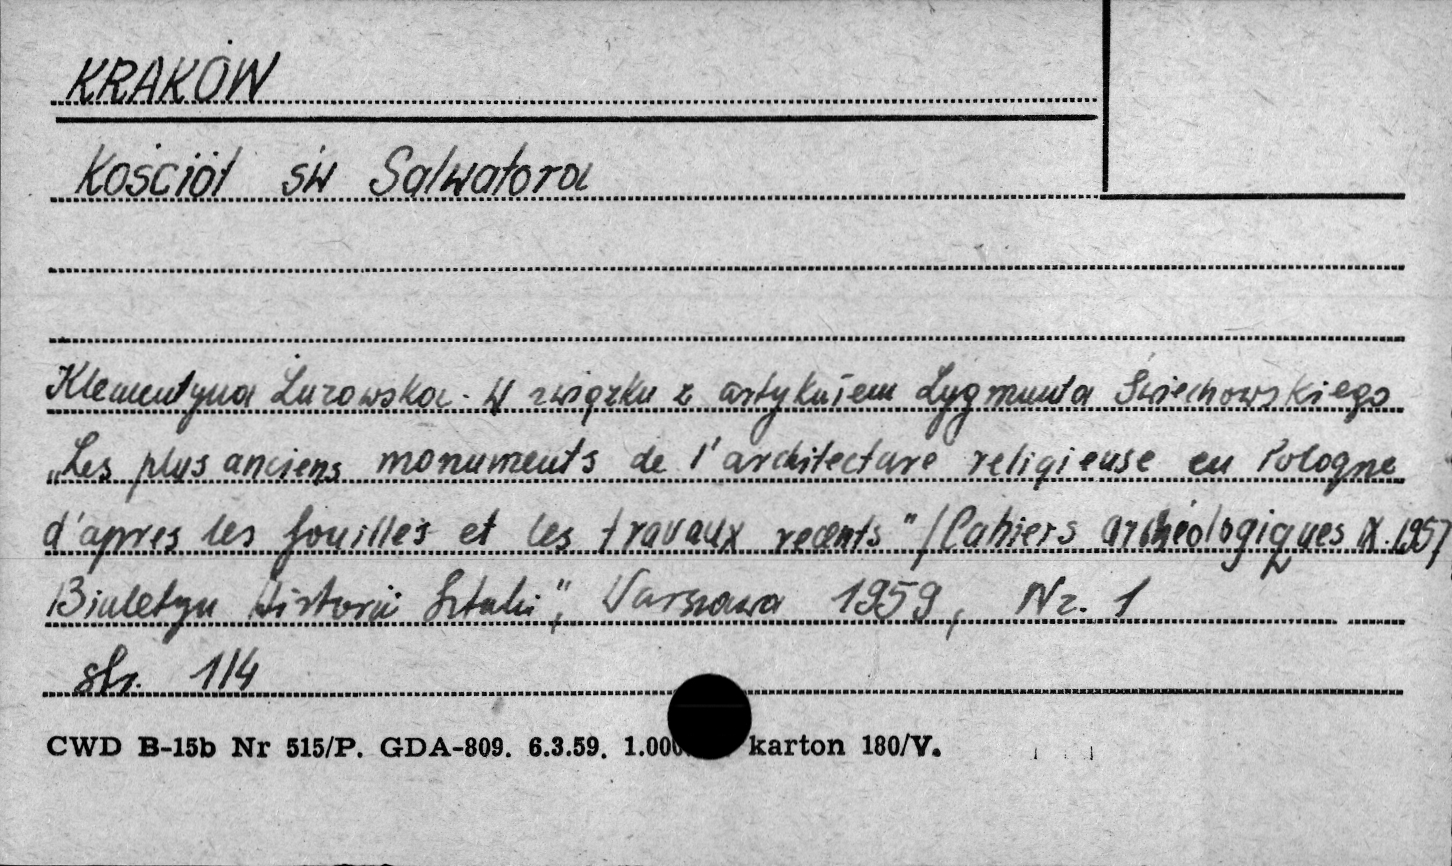 KRAKÓW
Kościół św Salwatora
Klementyna Żurowska. W związku z artykułem Zygmunta Świechowskiego
„Les plus anciens monuments de l'architecture religieuse en Pologne
d'apres les fouilles et les travaux recents" /Cahiers archéologiques IX. 1957/
Biuletyn Historii Sztuki", Warszawa 1959, Nr. 1
str. 114
CWD B-15b Nr 515/P. GDA-809. 6.3.59. 1.000 karton 180/V.